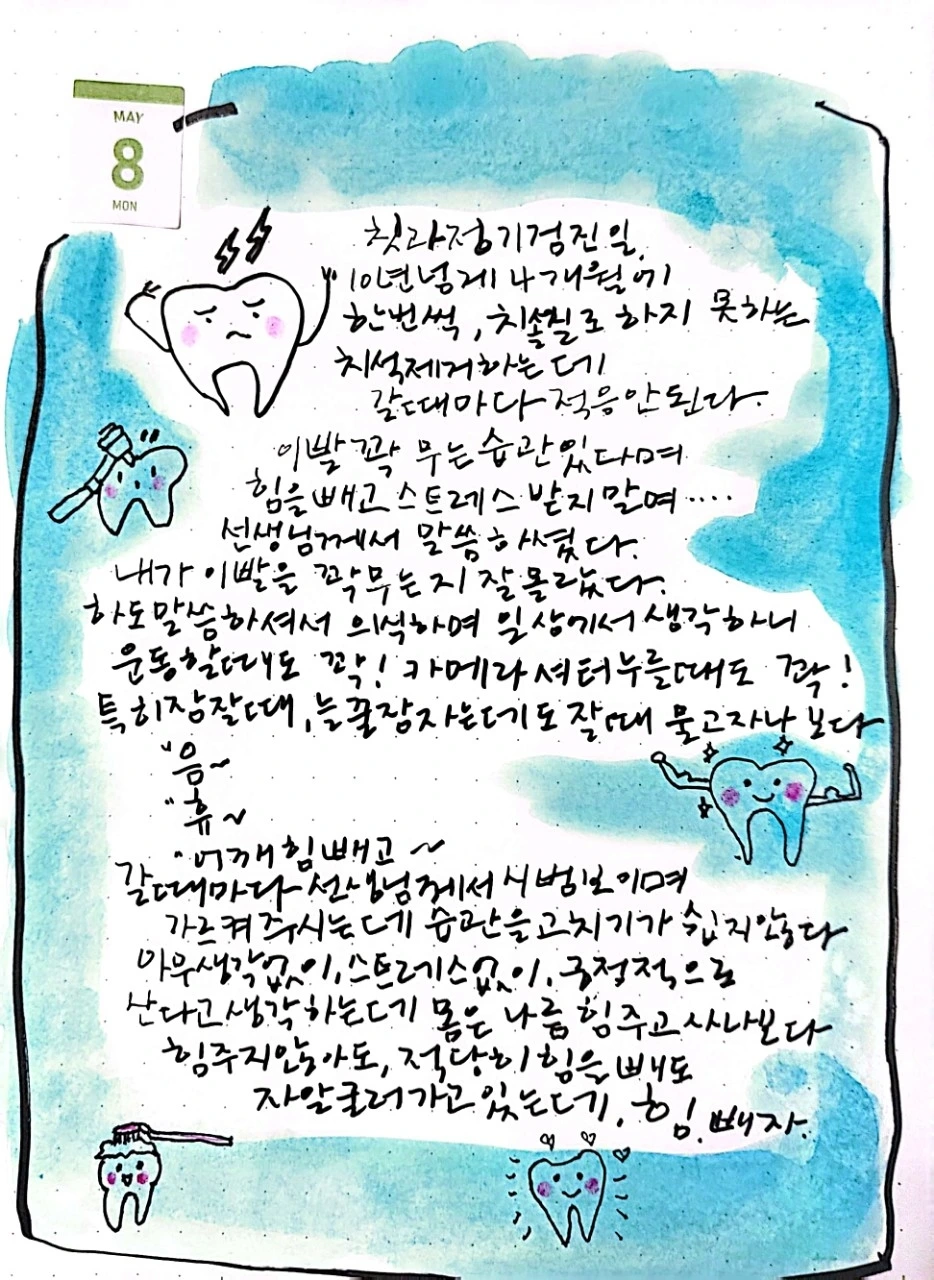 MAY
8
MON
칫과정기검진일.
10년넘게 4개월에
한번씩, 치솔질로 하지 못하는
치석제거하는데
갈때마다 적응안된다.
이빨 꽉 무는 습관있다며
힘을 빼고 스트레스 받지말며....
선생님께서 말씀하셨다.
내가 이빨을 꽉무는지 잘몰랐다.
하도말씀하셔서 의식하며 일상에서 생각하니
운동할때도 꽉! 카메라셔터누를때도 꽉!
특히잠잘때, 늘꿀잠자는데도 잘때 물고자나 보다
"음~
"휴~
"어깨힘빼고~
갈때마다 선생님께서 시범보이며
가르켜주시는데 습관을고치기가 쉽지않다
아무생각없이, 스트레스없이, 긍정적으로
산다고생각하는데 몸은 나름 힘주고 사나보다
힘주지않아도, 적당히힘을 빼도
자알굴러가고있는데, 힘.빼자.